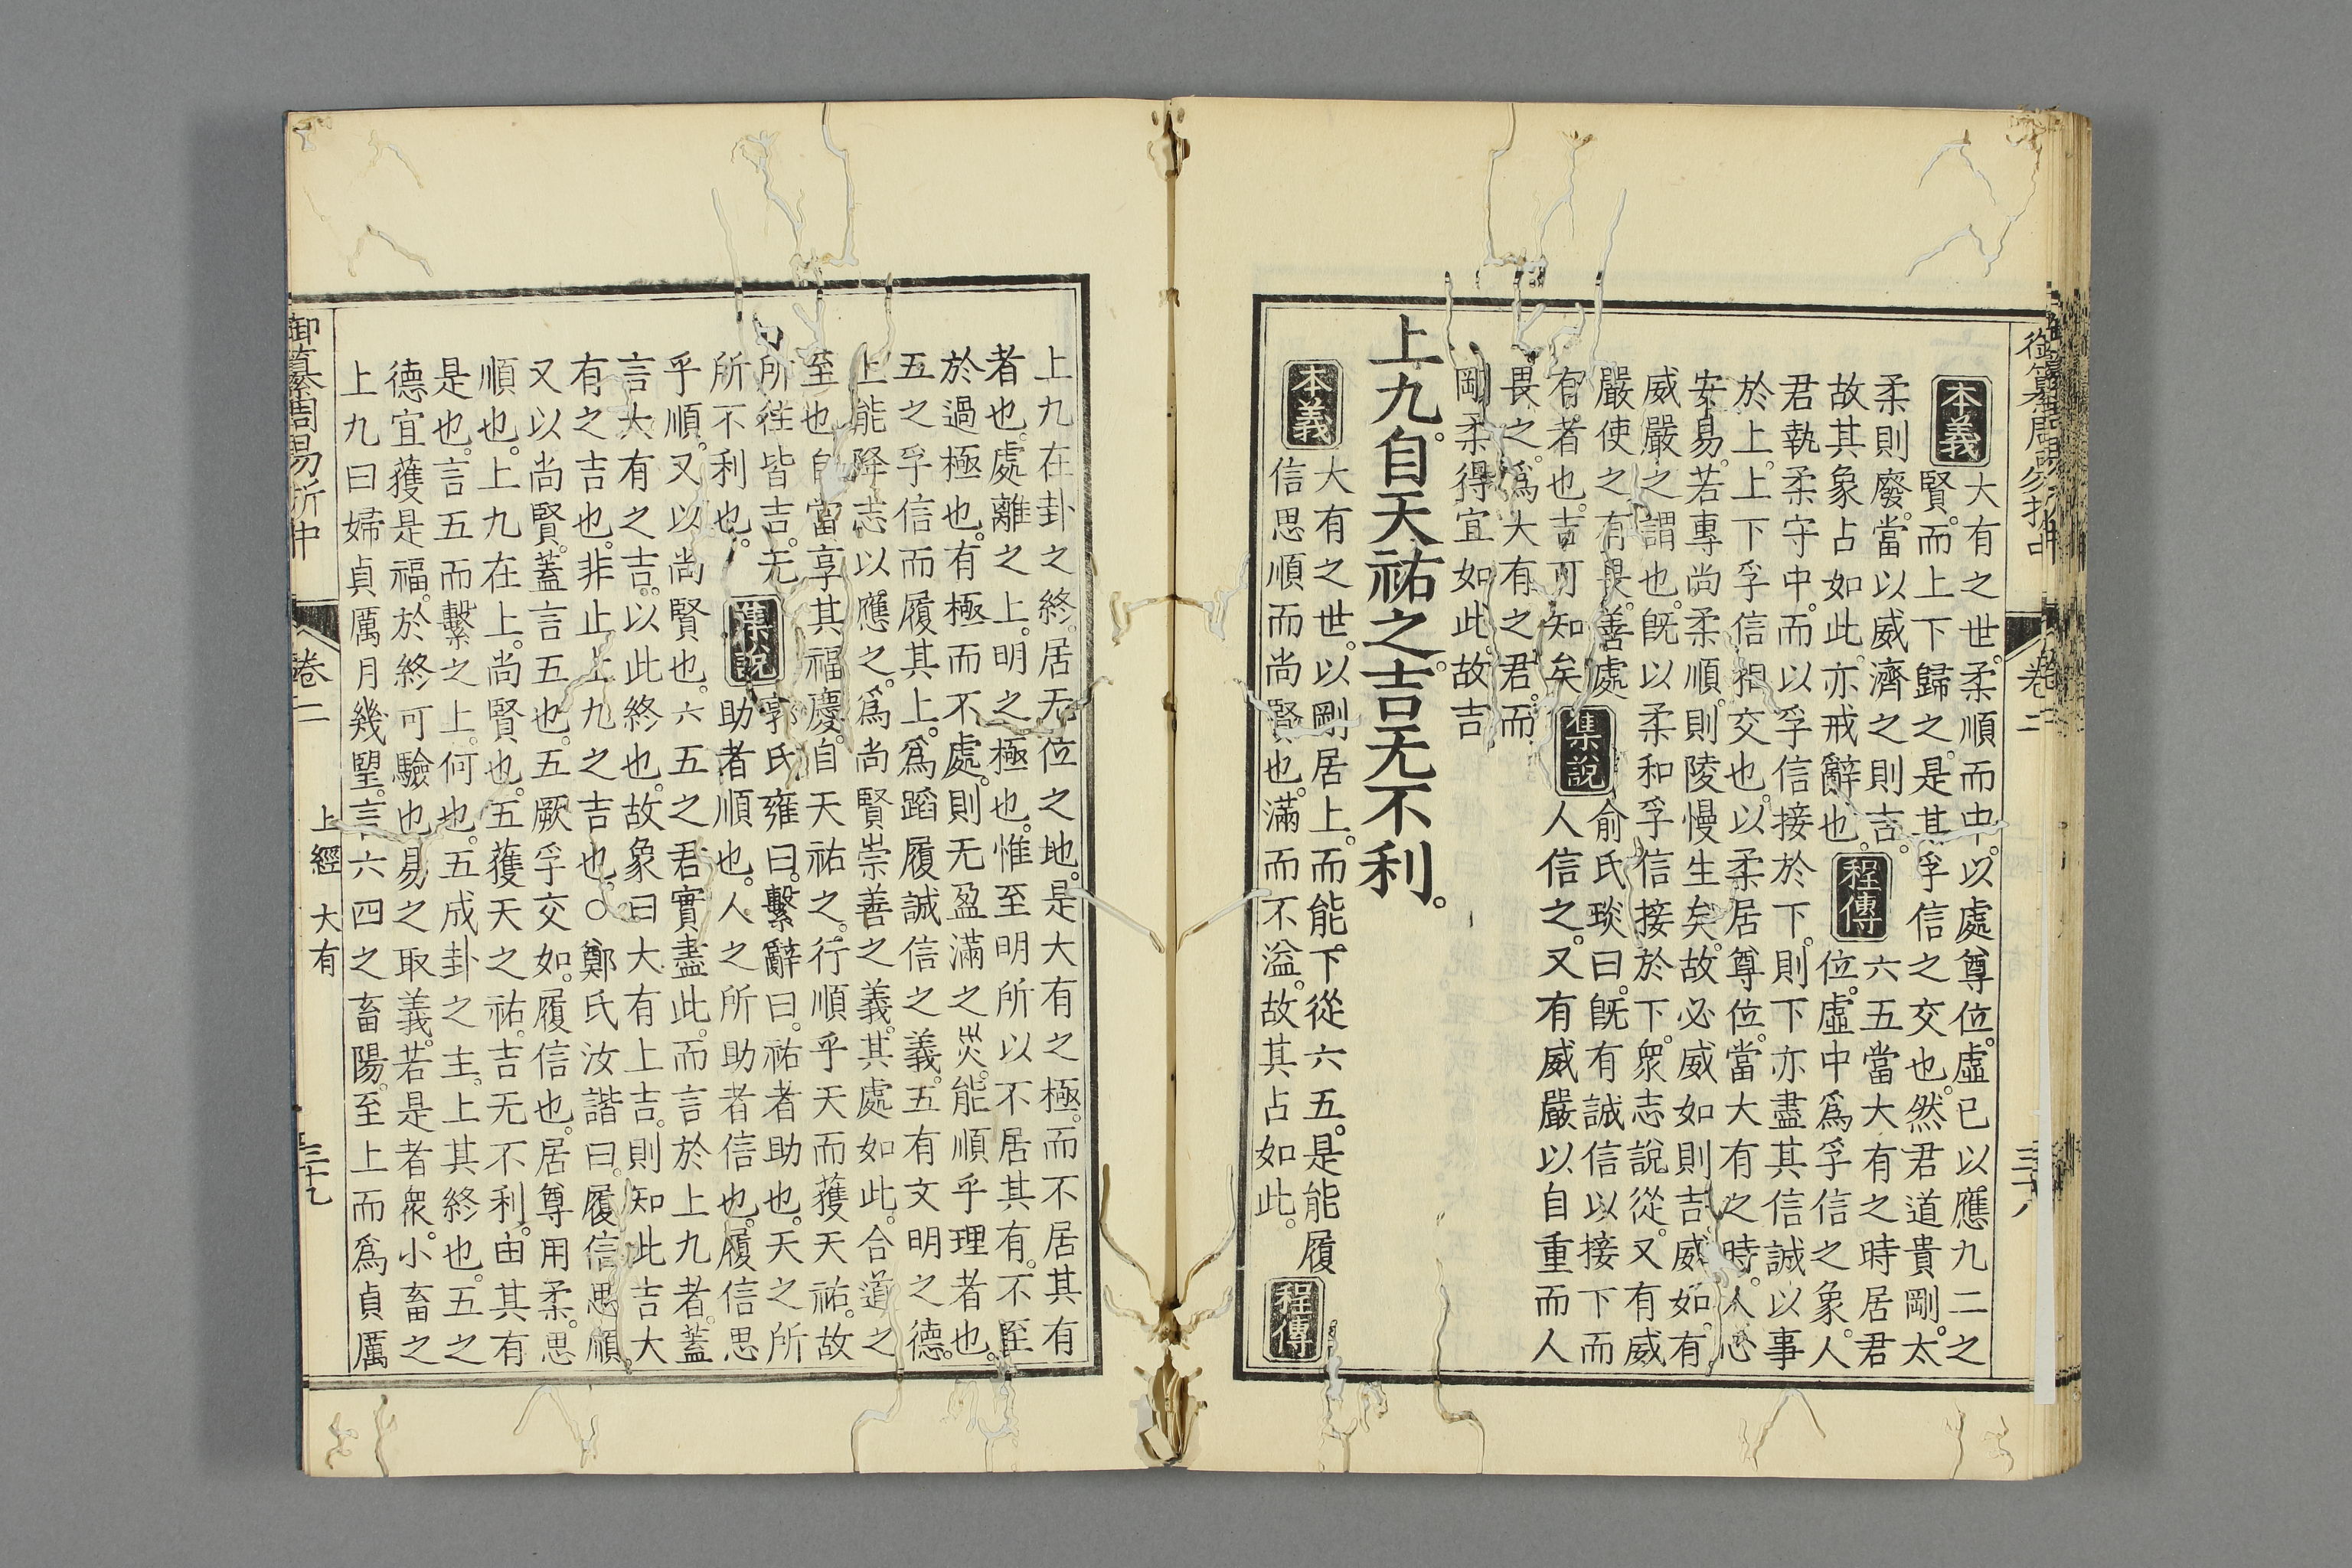 本義
大有之世。柔順而中。以處尊位。虛已以應九二之
賢。而上下歸之。是其孚信之交也。然君道貴剛。太
柔則廢。當以威濟之則吉。
故其象占如此。亦戒辭也。
程傳
六五當大有之時居君
位。虛中爲孚信之象。人
君執柔守中。而以孚信接於下。則下亦盡其信誠以事
於上。上下孚信相交也。以柔居尊位。當大有之時。人心
安易。若專尚柔順。則陵慢生矣。故必威如則吉。威如。有
威嚴之謂也。旣以柔和孚信接於下。衆志說從。又有威
嚴使之有畏。善處
有者也。吉可知矣
集說
俞氏琰曰。旣有誠信以接下而
人信之。又有威嚴以自重而人
畏之。爲大有之君。而
剛柔得宜如此。故吉
上九。自天祐之。吉无不利。
本義
大有之世。以剛居上。而能下從六五。是能履
信思順而尚賢也。滿而不溢。故其占如此。
程傳
上九在卦之終。居无位之地。是大有之極。而不居其有
者也。處離之上。明之極也。惟至明所以不居其有。不至
於過極也。有極而不處。則无盈滿之災。能順乎理者也。
五之孚信而履其上。爲蹈履誠信之義。五有文明之德。
上能降志以應之。爲尚賢崇善之義。其處如此。合道之
至也。自當享其福慶。自天祐之。行順乎天而獲天祐。故
所往皆吉。无
所不利也。
集說
郭氏雍曰。繫辭曰。祐者助也。天之所
助者順也。人之所助者信也。履信思
乎順。又以尚賢也。六五之君實盡此。而言於上九者。蓋
言大有之吉。以此終也。故象曰大有上吉。則知此吉大
有之吉也。非止上九之吉也。○鄭氏汝諧曰。履信思順。
又以尚賢。蓋言五也。五厥孚交如。履信也。居尊用柔。思
順也。上九在上。尚賢也。五獲天之祐。吉无不利。由其有
是也。言五而繫之上。何也。五成卦之主。上其終也。五之
德宜獲是福。於終可驗也。易之取義。若是者衆。小畜之
上九曰婦貞厲月幾望。言六四之畜陽。至上而爲貞厲
御纂周易折中
卷二
上經 大有
三十九
卷二
三十八